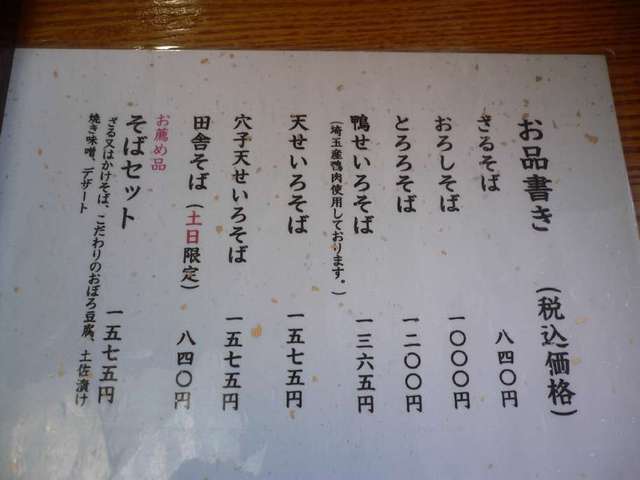 お品書き　（税込価格）
ざるそば　八四〇円
おろしそば　一〇〇〇円
とろろそば　一二〇〇円
鴨せいろそば　一三六五円
（埼玉産鴨肉使用しております。）
天せいろそば　一五七五円
穴子天せいろそば　一五七五円
田舎そば（土日限定）　八四〇円
お薦め品
そばセット　一五七五円
ざる又はかけそば、こだわりのおぼろ豆腐、土佐漬け
焼き味噌、デザート